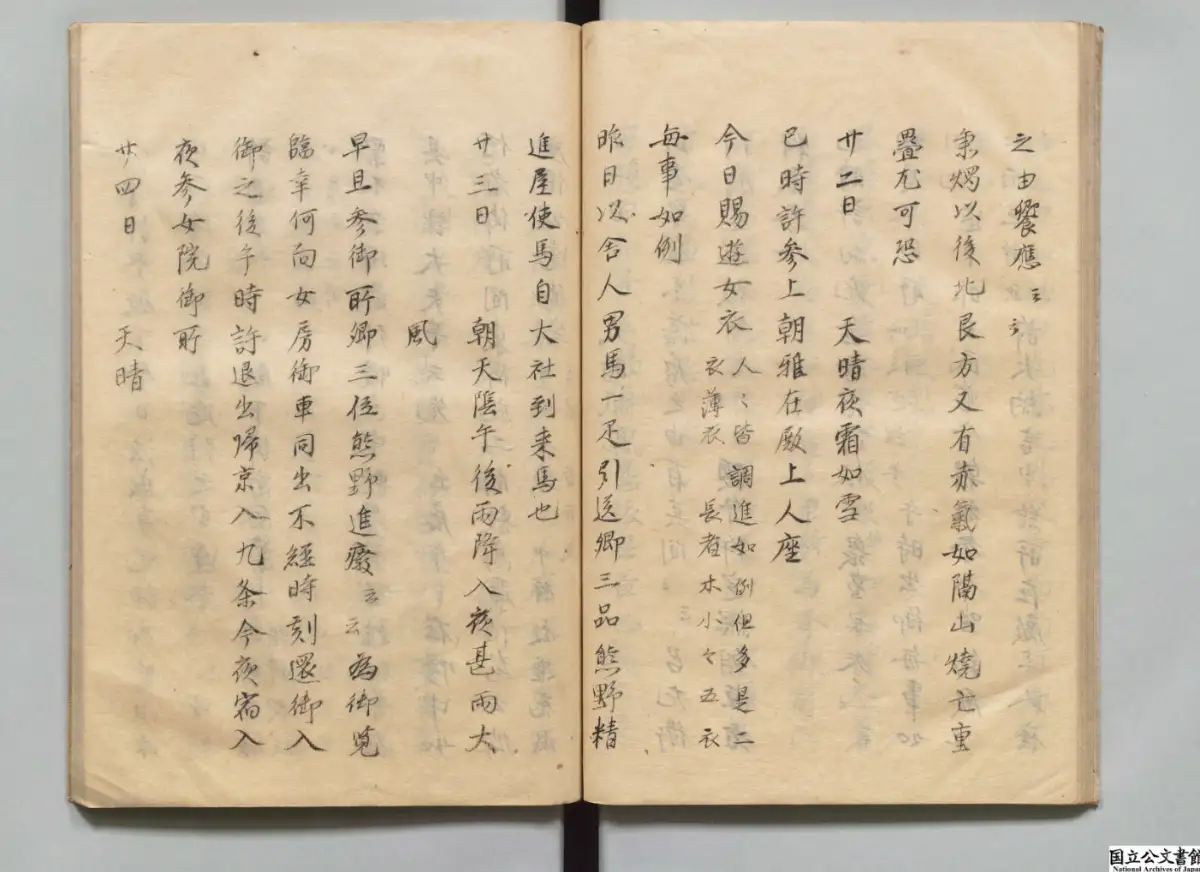 之由饗應云々
秉燭以後北艮方又有赤氣如隔山燒亡重
疊尤可恐
廿二日　天晴夜霜如雪
巳時許参上朝雅在殿上人座
今日賜遊女衣　人々皆調進如例但多是二
衣薄衣　長者木小々五衣
毎事如例
昨日以舎人男馬一疋引送卿三品熊野精
進屋使馬自大社到来馬也
廿三日　朝天陰午後雨降入夜甚雨大
風
早旦参御所卿三位熊野進癈云云為御覧
臨幸何向女房御車同出不經時刻還御入
御之後午時許退出帰京入九条今夜宿入
夜参女院御所
廿四日　天晴
国立公文書館
National Archives of Japan